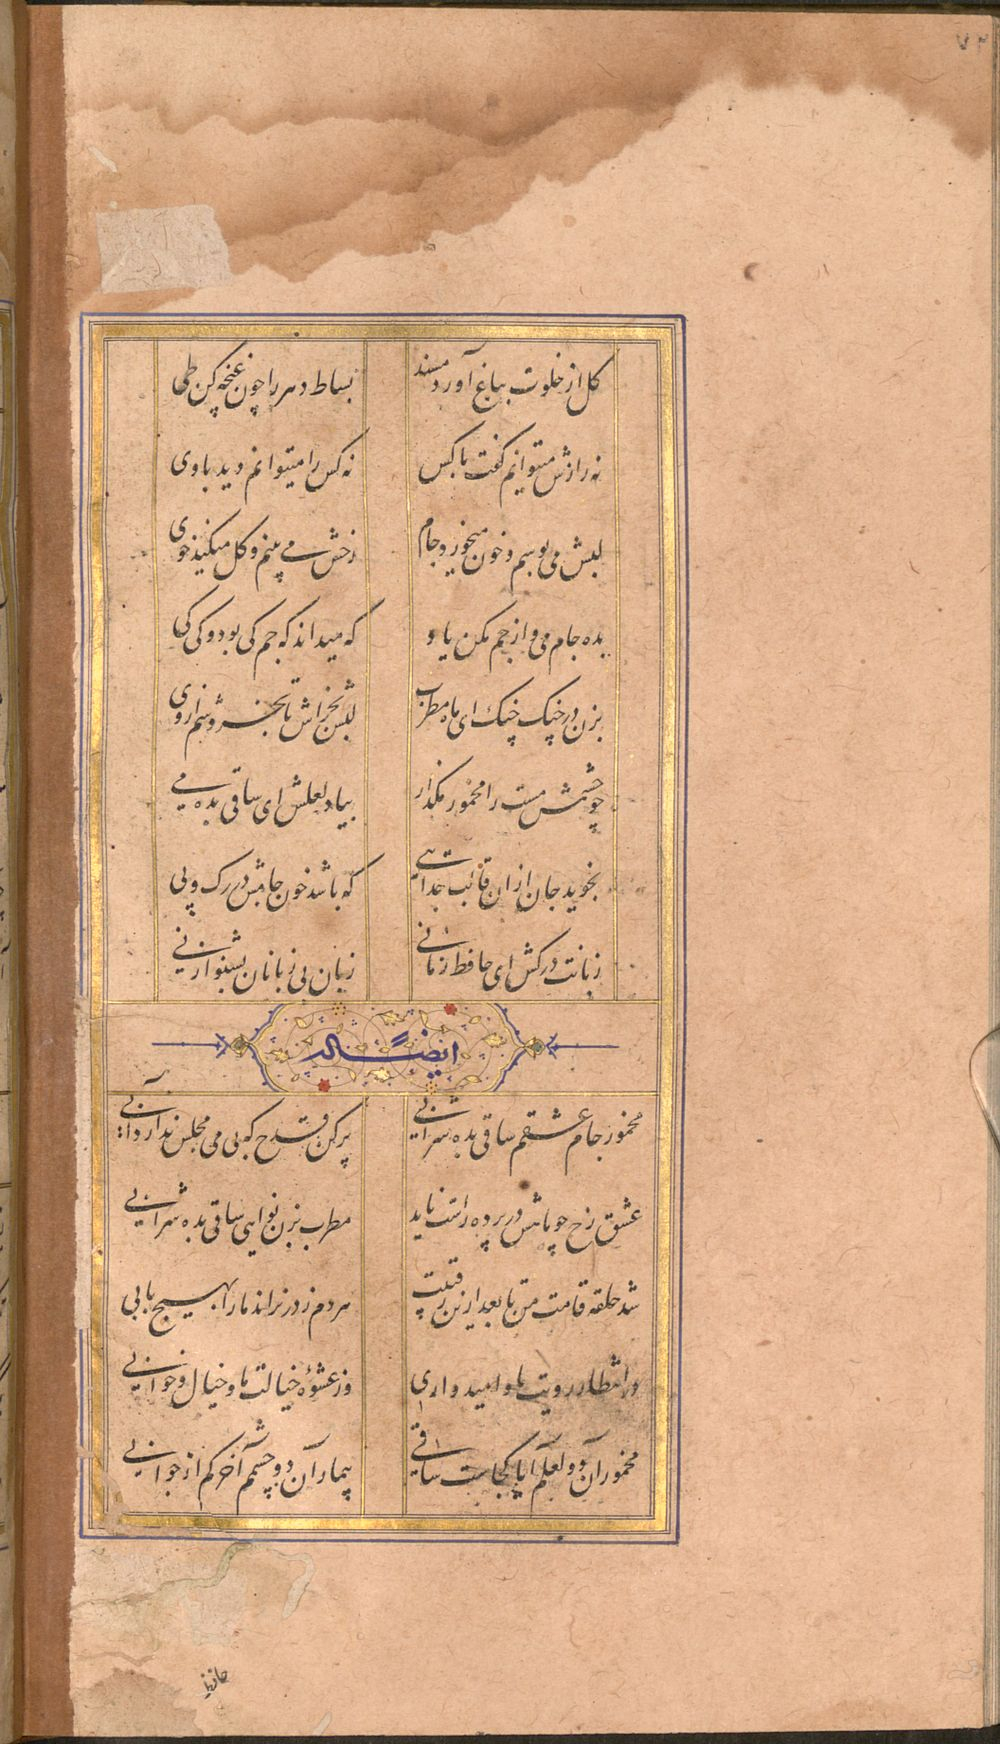 ۷۲
گل از خلوت بباغ آورد مسند بساط دهر را چون غنچه کن طی
نه رازش میتوانم گفت با کس نه کس را میتوانم دید باوی
لبش می بوسم و خون میخورد جام رخش می بینم و گل میکند خوی
بده جام می و از جم مکن یاد که میداند که جم کی بود و کی کی
بزن در چنگ چنگ ای ماه مطرب بخراش تا بخروشم از وی
چو چشمش مست را مخمور مگذار بیاد لعلش ای ساقی بده می
نجوید جان ازان قالب جدایی که باشد خون جامش در رگ و پی
زبانت درکش ای حافظ زمانی زبان بی زبانان بشنو از نی
ایضا له
مخمور جام عشقم ساقی بده شرابی پر کن قدح که بی می مجلس ندارد آبی
عشق رخ چو ماهش در پرده راست ناید مطرب بزن نوایی ساقی بده شرابی
شد حلقه قامت من تا بعد ازین رقیبت هر دم ز در نراند ما را بهیچ بابی
در انتظار رویت ما و امیدواری وز عشوه خیالت ما و خیال و خوابی
مخمور آن دو لعلم آیا کجاست ساقی بیمار آن دو چشمم آخر کم از جوابی